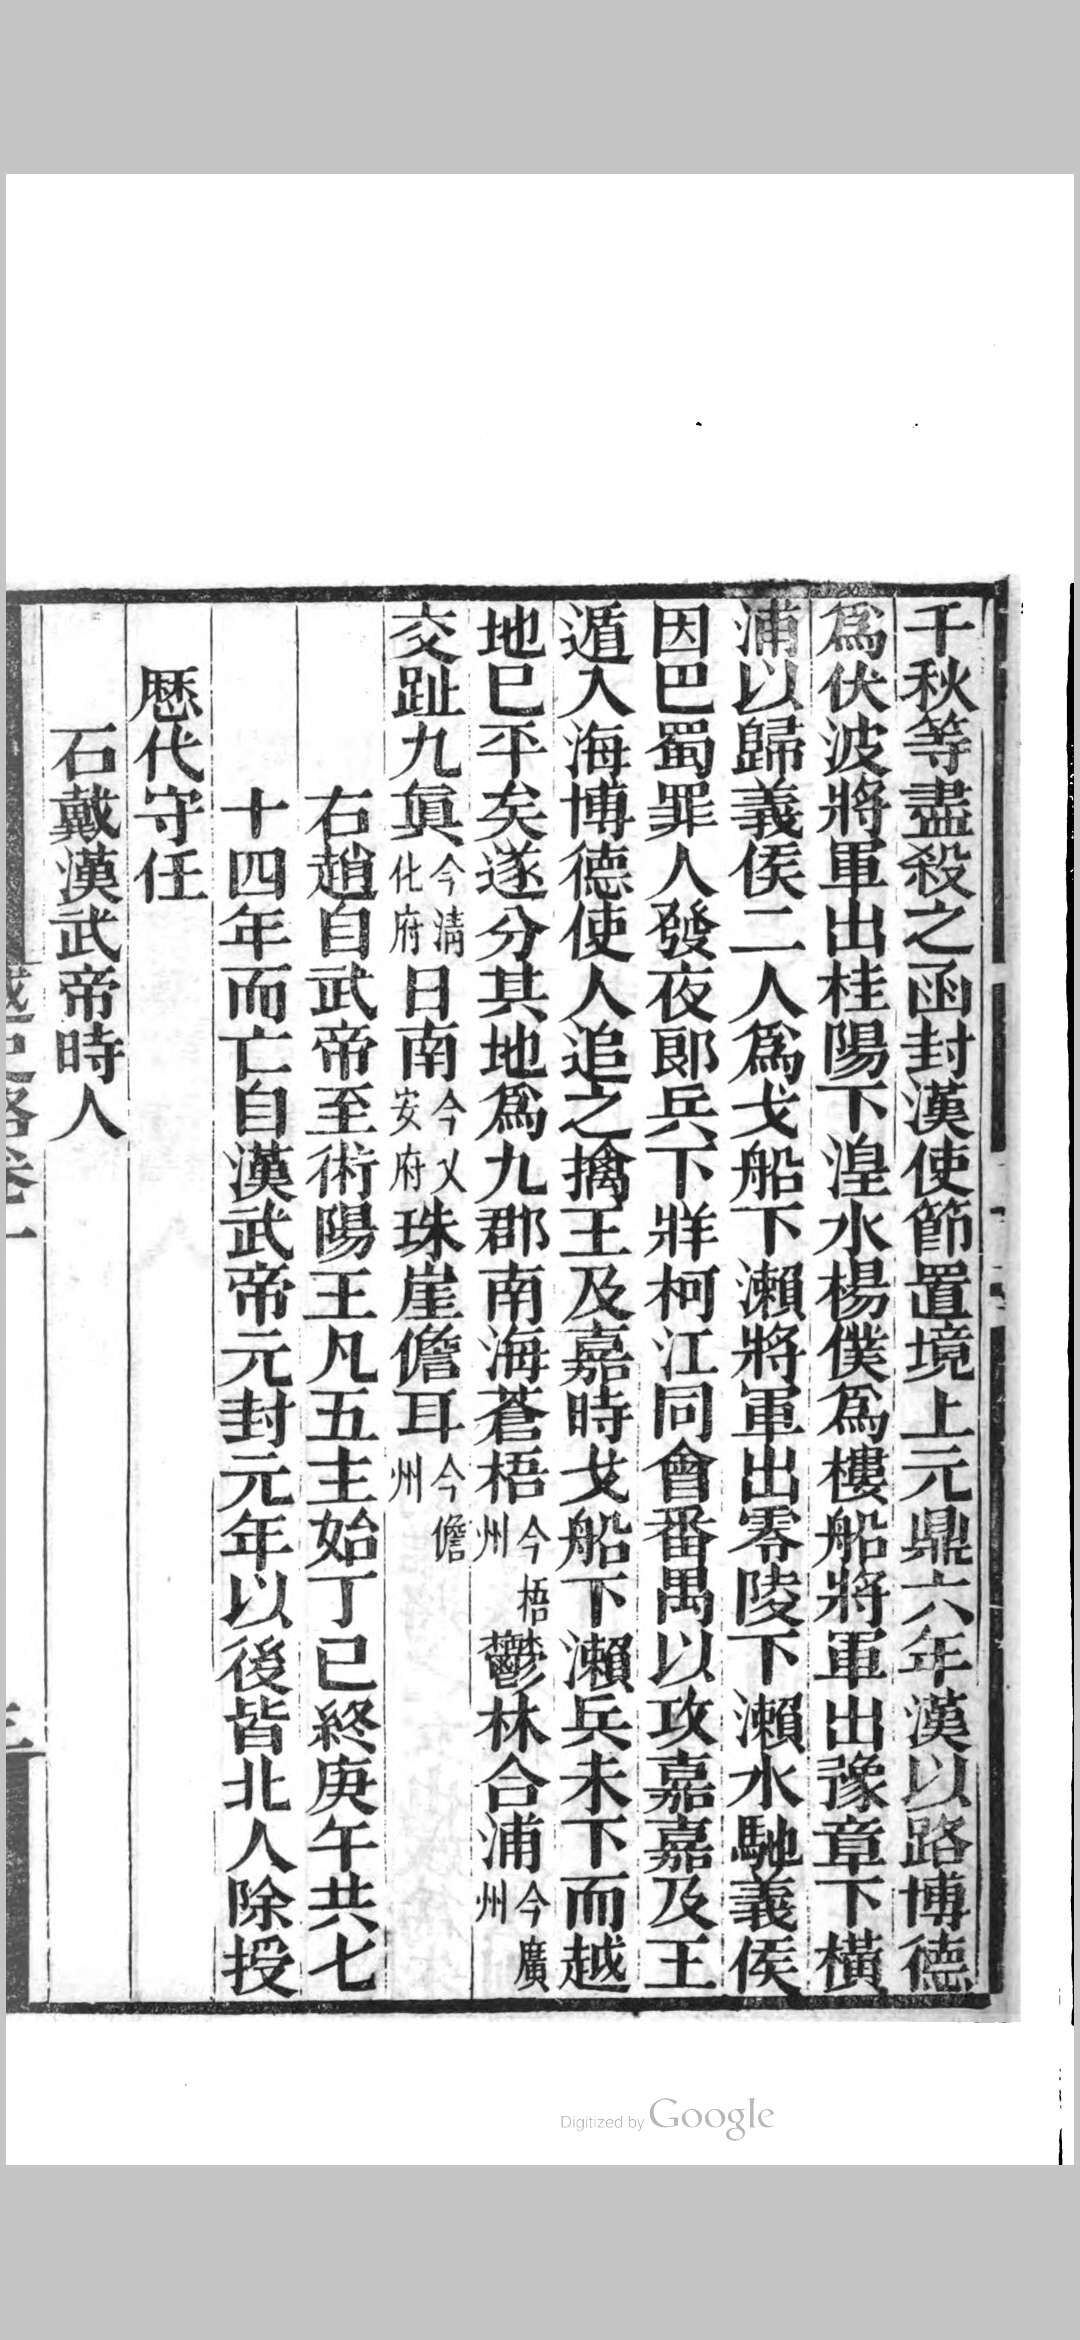 千秋等盡殺之函封漢使節置境上元鼎六年漢以路博德
爲伏波將軍出桂陽下湟水楊僕爲樓船將軍出豫章下橫
浦以歸義侯二人爲戈船下瀨將軍出零陵下瀨水馳義侯
因巴蜀罪人發夜郎兵下牂柯江同會番禺以攻嘉嘉及王
遁入海博德使人追之擒王及嘉時戈船下瀨兵未下而越
地已平矣遂分其地爲九郡南海蒼梧今梧州鬱林合浦今廣州
交趾九眞今淸化府日南今乂安府珠崖儋耳今儋州
右趙自武帝至術陽王凡五主始丁已終庚午共七
十四年而亡自漢武帝元封元年以後皆北人除授
歷代守任
石戴漢武帝時人
越史略卷一
三
Digitized by Google